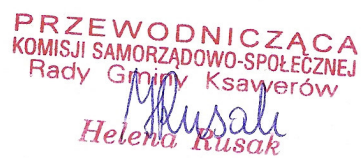 PRZEWODNICZĄCA
KOMISJI SAMORZĄDOWO-SPOŁECZNEJ
Rady Gminy Ksawerów
HRusak
Helena Rusak